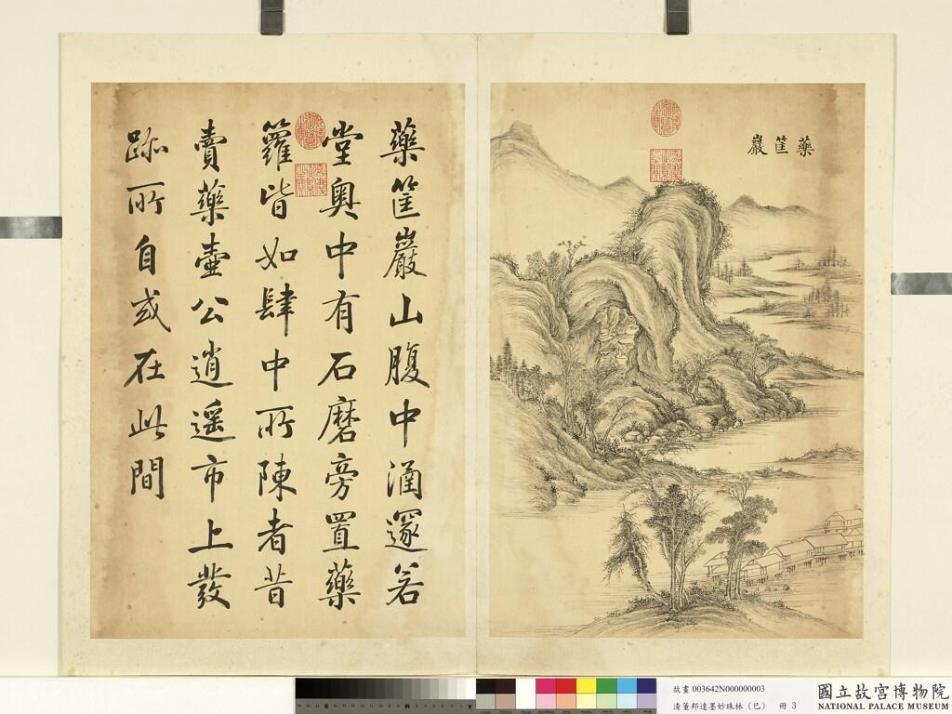 藥筐巖
藥筐巖山腹中涵邃若
堂奧中有石磨旁置藥
籮皆如肆中所陳者昔
賣藥壺公逍遥市上發
跡所自或在此間
故畫 003642N000000003
清董邦達墨妙珠林（巳） 冊 3
國立故宮博物院
NATIONAL PALACE MUSEUM